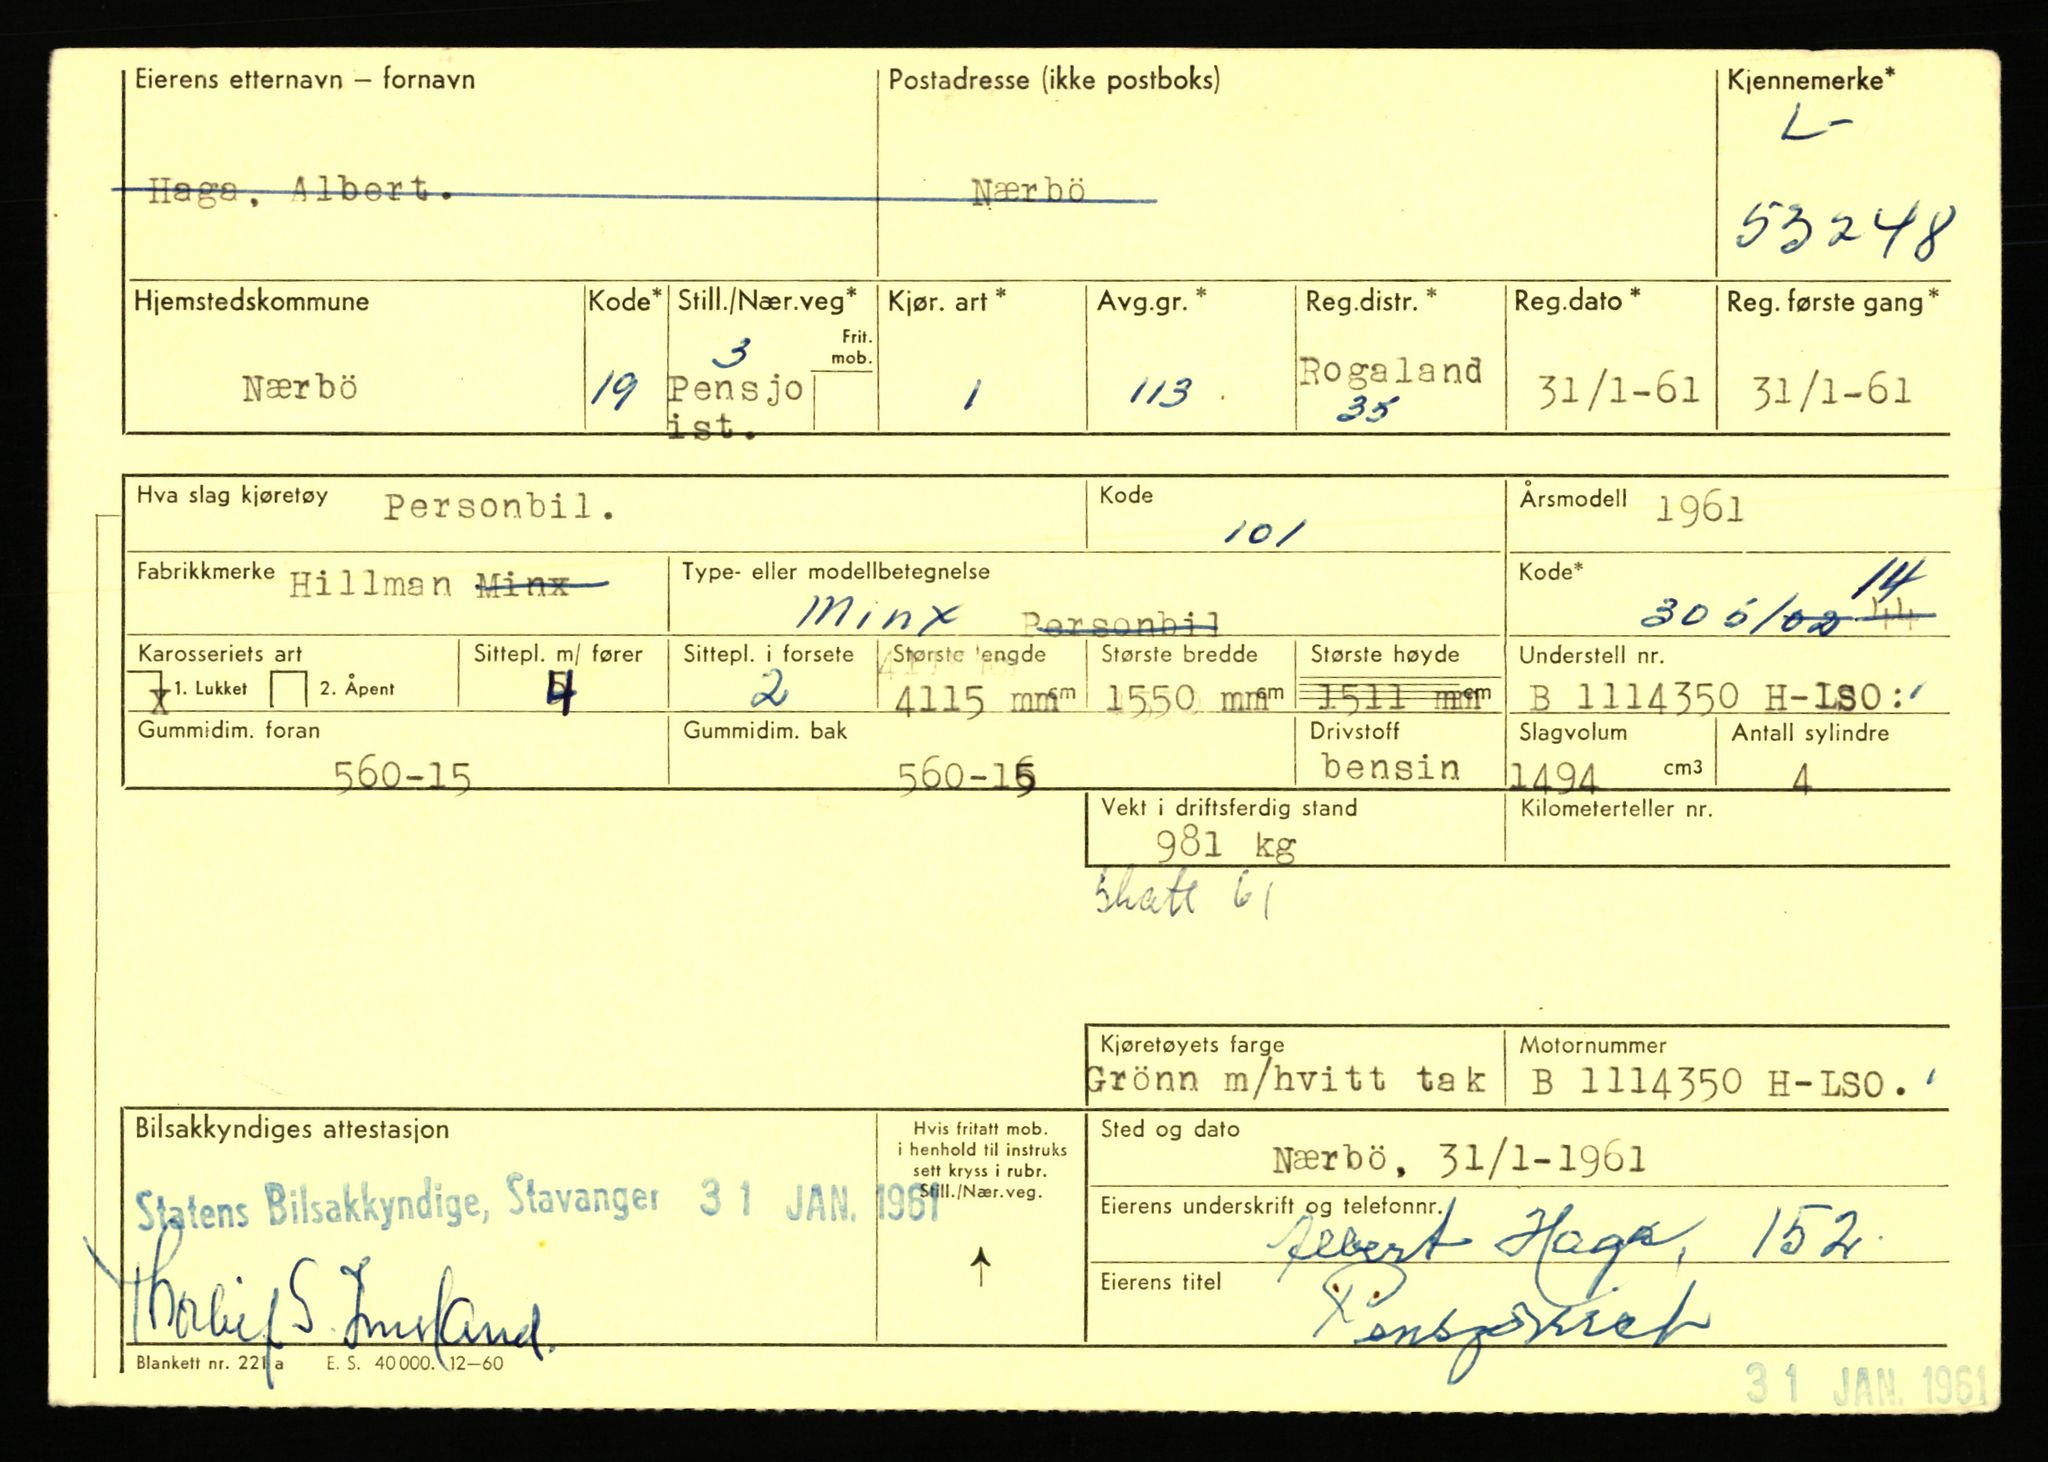 Eierens etternavn – fornavn
Postadresse (ikke postboks)
Kjennemerke*
L-
Haga, Albert.
Nærbö
53248
Hjemstedskommune
Kode*
Still./Nær.veg*
Kjør. art*
Avg.gr.*
Reg.distr.*
Reg.dato*
Reg. første gang*
Frit. mob.
3
Nærbö
19
Pensjo
ist.
1
113
Rogaland
35
31/1-61
31/1-61
Hva slag kjøretøy Personbil.
Kode
101
Årsmodell 1961
Fabrikkmerke Hillman Minx
Type- eller modellbetegnelse
Minx Personbil
Kode*
14
305/02 44
Karosseriets art
Sittepl. m/ fører
Sittepl. i forsete
Største lengde
Største bredde
Største høyde
Understell nr.
x 1. Lukket
2. Åpent
4
2
4115 mm cm
1550 mm cm
1511 mm cm
B 1114350 H-LSO:
Gummidim. foran
Gummidim. bak
Drivstoff
Slagvolum
Antall sylindre
560-15
560-15
bensin
1494 cm3
4
Vekt i driftsferdig stand
Kilometerteller nr.
981 kg
Skatt 61
Kjøretøyets farge
Motornummer
Grönn m/hvitt tak
B 1114350 H-LSO.
Bilsakkyndiges attestasjon
Hvis fritatt mob.
i henhold til instruks
sett kryss i rubr.
Still./Nær.veg.
Sted og dato
Nærbö, 31/1-1961
Statens Bilsakkyndige, Stavanger 31 JAN. 1961
Eierens underskrift og telefonnr.
Albert Haga, 152
Eierens titel
Pensjonist
Blankett nr. 221 a E. S. 40 000. 12–60
31 JAN. 1961